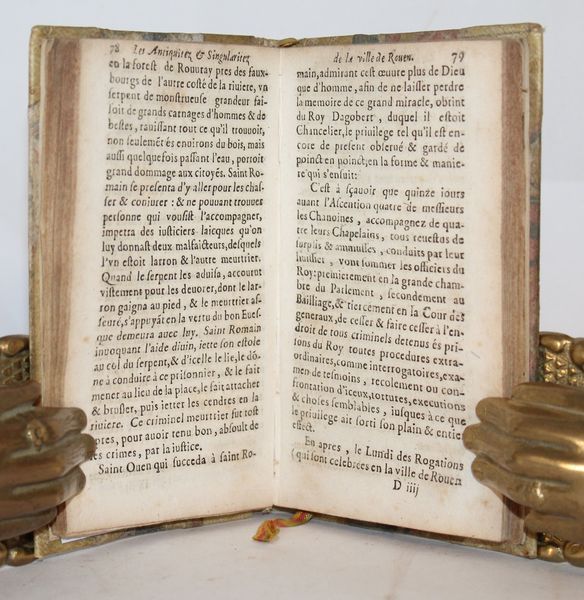 78 Les Antiquitez & Singularitez
en la forest de Rouuray pres des faux-
bourgs de l'autre costé de la riuiere, vn
serpent de monstrueuse grandeur fai-
soit de grands carnages d'hommes & de
bestes, rauissant tout ce qu'il trouuoit,
non seulemēt és enuirons du bois, mais
aussi quelquefois passant l'eau, portoit
grand dommage aux citoyēs. Saint Ro-
main se presenta d'y aller pour les chas-
ser & coniurer : & ne pouuant trouuer
personne qui voulsist l'accompagner,
impetra des iusticiers laicques qu'on
luy donnast deux malfaicteurs, desquels
l'vn estoit larron & l'autre meurtrier.
Quand le serpent les aduisa, accourut
vistement pour les deuorer, dont le lar-
ron gaigna au pied, & le meurtrier as-
seuré, s'appuyāt en la vertu du bon Eues-
que demeura auec luy. Saint Romain
inuoquant l'aide diuin, iette son estole
au col du serpent, & d'icelle le lie, le dō-
ne à conduire à ce prisonnier, & le fait
mener au lieu de la place, le fait attacher
& brusler, puis ietter les cendres en la
riuiere. Ce criminel meurtrier fut tost
apres, pour auoir tenu bon, absoult de
ses crimes, par la iustice.
Saint Ouen qui succeda à saint Ro-
de la ville de Rouen. 79
main, admirant cest œuure plus de Dieu
que d'homme, afin de ne laisser perdre
la memoire de ce grand miracle, obtint
du Roy Dagobert, duquel il estoit
Chancelier, le priuilege tel qu'il est en-
core de present obserué & gardé de
poinct en poinct, en la forme & manie-
re qui s'ensuit:
C'est à sçauoir que quinze iours
auant l'Ascention quatre de messieurs
les Chanoines, accompagnez de qua-
tre leurs Chapelains, tous reuestus de
surplis & aumusses, conduits par leur
huissier, vont sommer les officiers du
Roy: premierement en la grande cham-
bre du Parlement, secondement au
Bailliage, & tiercement en la Cour des
generaux, de cesser & faire cesser à l'en-
droit de tous criminels detenus és pri-
sons du Roy toutes procedures extra-
ordinaires, comme interrogatoires, exa-
men de tesmoins, recolement ou con-
frontation d'iceux, tortures, executions
& choses semblables, iusques à ce que
le priuilege ait sorti son plain & entier
effect.
En apres, le Lundi des Rogations
(qui sont celebrees en la ville de Rouen
D iiij